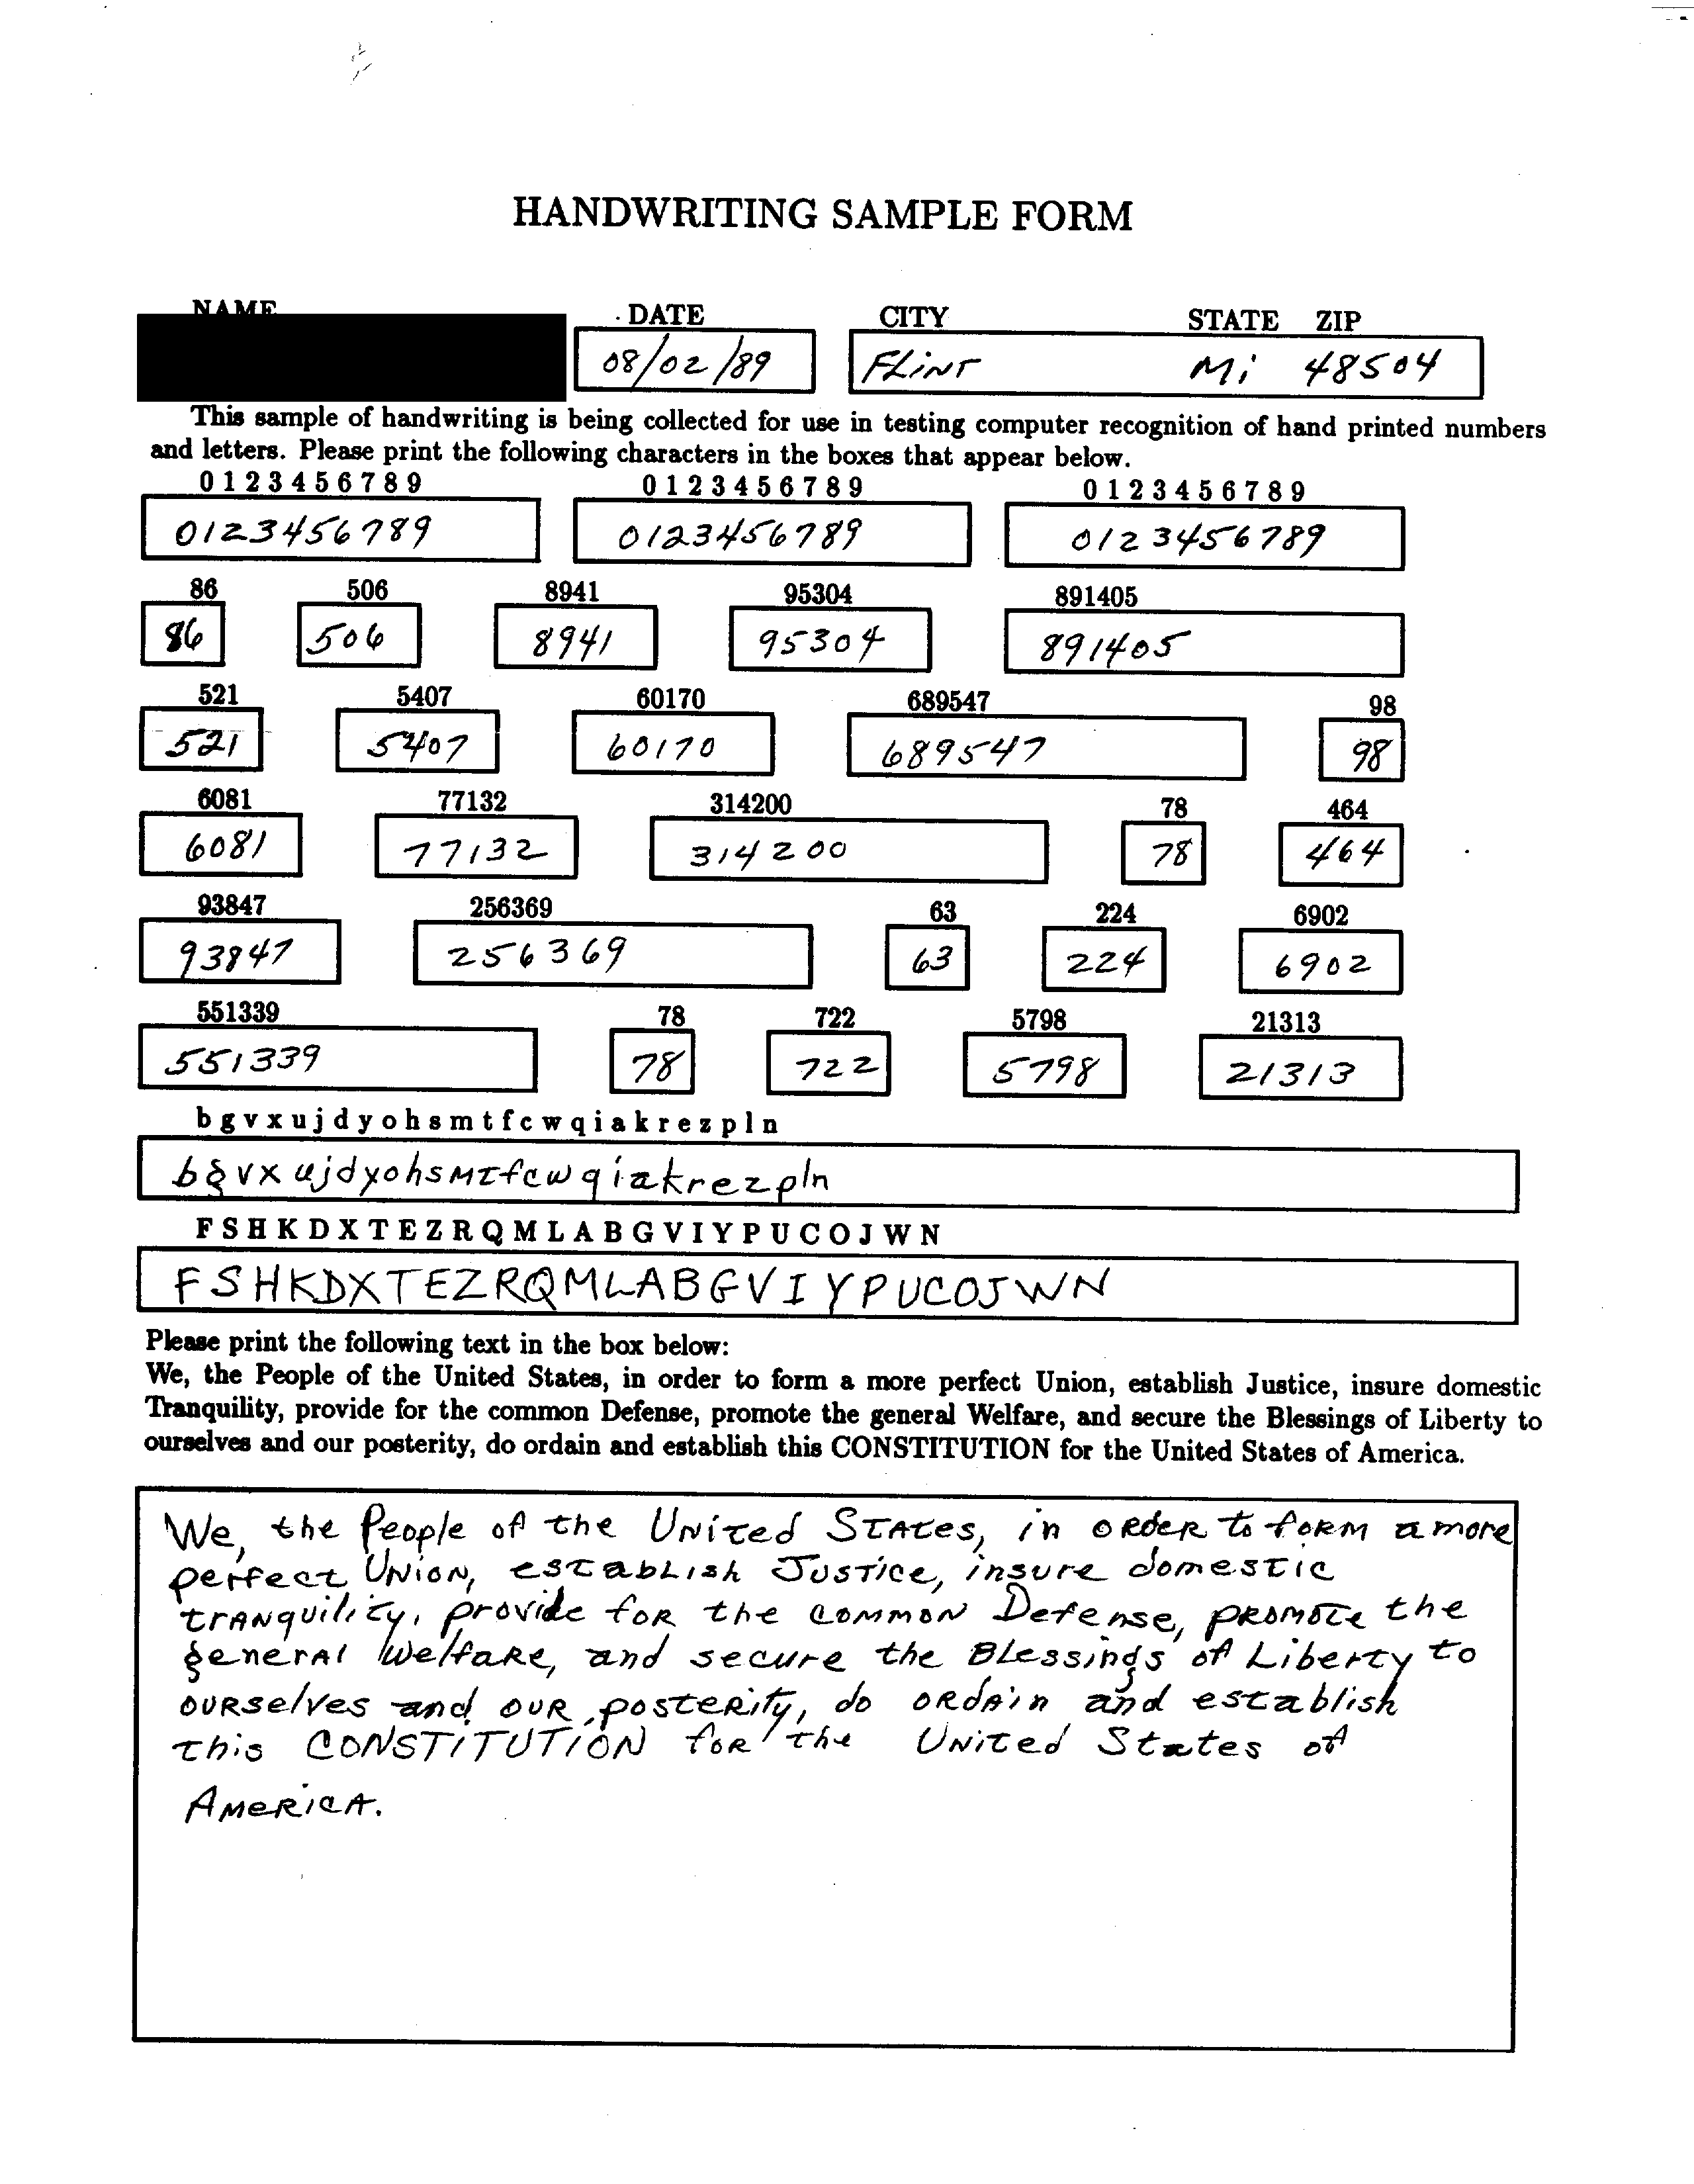 HANDWRITING SAMPLE FORM
NAME DATE CITY STATE ZIP
08/02/89 FLiNT Mi 48504
This sample of handwriting is being collected for use in testing computer recognition of hand printed numbers
and letters. Please print the following characters in the boxes that appear below.
0 1 2 3 4 5 6 7 8 9 0 1 2 3 4 5 6 7 8 9 0 1 2 3 4 5 6 7 8 9
0123456789 0123456789 0123456789
86 506 8941 95304 891405
86 506 8941 95304 891405
521 5407 60170 689547 98
521 5407 60170 689547 98
6081 77132 314200 78 464
6081 77132 314200 78 464
93847 256369 63 224 6902
93847 256369 63 224 6902
551339 78 722 5798 21313
551339 78 722 5798 21313
b g v x u j d y o h s m t f c w q i a k r e z p l n
bgvxujdyohsMtfcwqiakrezpln
F S H K D X T E Z R Q M L A B G V I Y P U C O J W N
FSHKDXTEZRQMLABGVIYPUCOJWN
Please print the following text in the box below:
We, the People of the United States, in order to form a more perfect Union, establish Justice, insure domestic
Tranquility, provide for the common Defense, promote the general Welfare, and secure the Blessings of Liberty to
ourselves and our posterity, do ordain and establish this CONSTITUTION for the United States of America.
We, the People of the UNited STAtes, in oRdeR to foRM a more
perfect UNioN, establish JUSTice, insure domestic
trANquility, provide foR the coMMoN Defense, pRomote the
generAl WelfaRe, and secure the BLessings of Liberty to
ouRselves and ouR posteRity, do oRdAin and establish
this CONSTITUTION foR the UNited States of
AMeRicA.